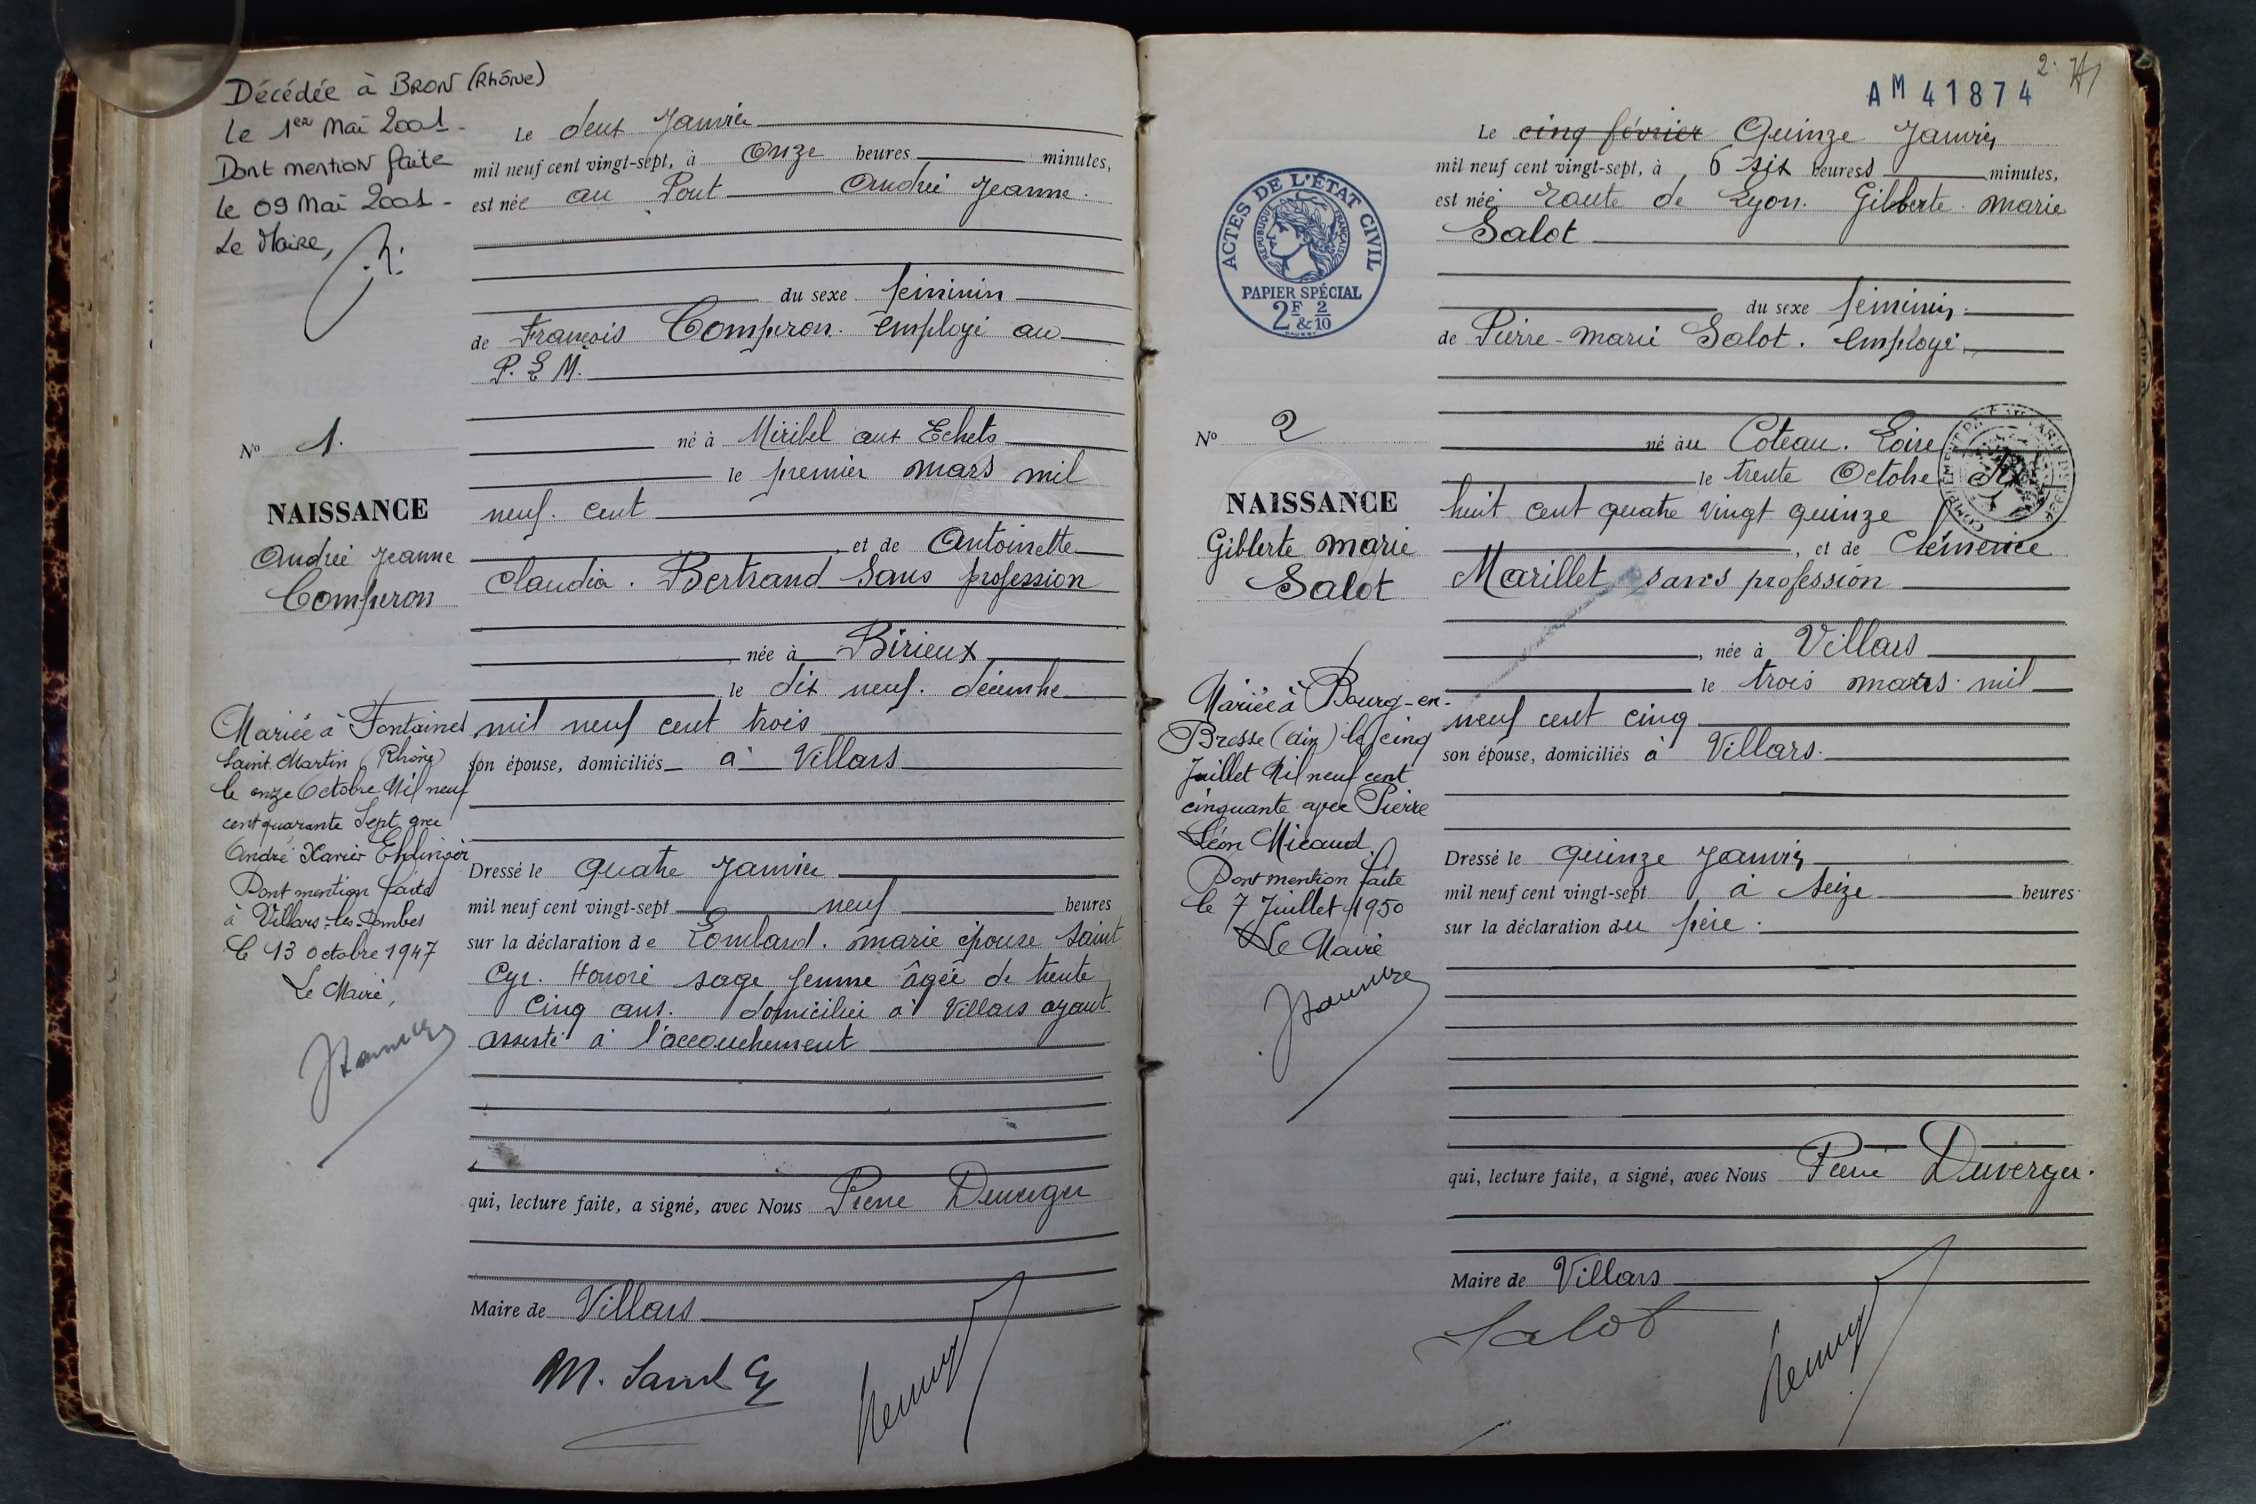 Décédée à BRON (Rhône)
Le 1er Mai 2001 -
Dont mention faite
le 09 Mai 2001 -
Le Maire,
Le deux Janvier
mil neuf cent vingt-sept, à onze heures minutes,
est née au Pont Andrée Jeanne.
du sexe féminin
de François Comperon. employé au
P. L M.
né à Miribel aux Echets
le premier mars mil
neuf. cent
, et de Antoinette
Claudia. Bertrand sans profession
, née à Birieux
le dix neuf. décembre
mil neuf cent trois
son épouse, domiciliés à Villars
Dressé le quatre Janvier
mil neuf cent vingt-sept neuf heures
sur la déclaration de Lombard. marie épouse Saint
Cyr. Honoré sage femme âgée de trente
cinq ans. domiciliée à Villars ayant
assisté à l'accouchement
qui, lecture faite, a signé, avec Nous Pierre Duverger
Maire de Villars
M. Saint Cy
No 1.
NAISSANCE
Andrée Jeanne
Comperon
Mariée à Fontaines
Saint Martin (Rhône)
le onze Octobre Mil neuf
cent quarante Sept avec
André Xavier Ehlinger
Dont mention faite
à Villars-les-Dombes
le 13 octobre 1947
Le Maire,
AM 41874
2.
Le cinq février Quinze Janvier
mil neuf cent vingt-sept, à 6 six heures minutes,
est née route de Lyon. Gilberte marie
Salot
du sexe féminin.
de Pierre-marie Salot. employé
né au Coteau. Loire
le trente Octobre
huit cent quatre vingt quinze
, et de Clémence
Marillet sans profession
, née à Villars
le trois mars mil
neuf cent cinq
son épouse, domiciliés à Villars.
Dressé le quinze Janvier
mil neuf cent vingt-sept à seize heures
sur la déclaration du père.
qui, lecture faite, a signé, avec Nous Pierre Duverger.
Maire de Villars
Salot
ACTES DE L'ÉTAT CIVIL
RÉPUBLIQUE FRANÇAISE
PAPIER SPÉCIAL
2F & 2/10
No 2
NAISSANCE
Gilberte marie
Salot
Mariée à Bourg-en-
Bresse (Ain) le cinq
Juillet Mil neuf cent
cinquante avec Pierre
Léon Micaud.
Dont mention faite
le 7 Juillet 1950
Le Maire